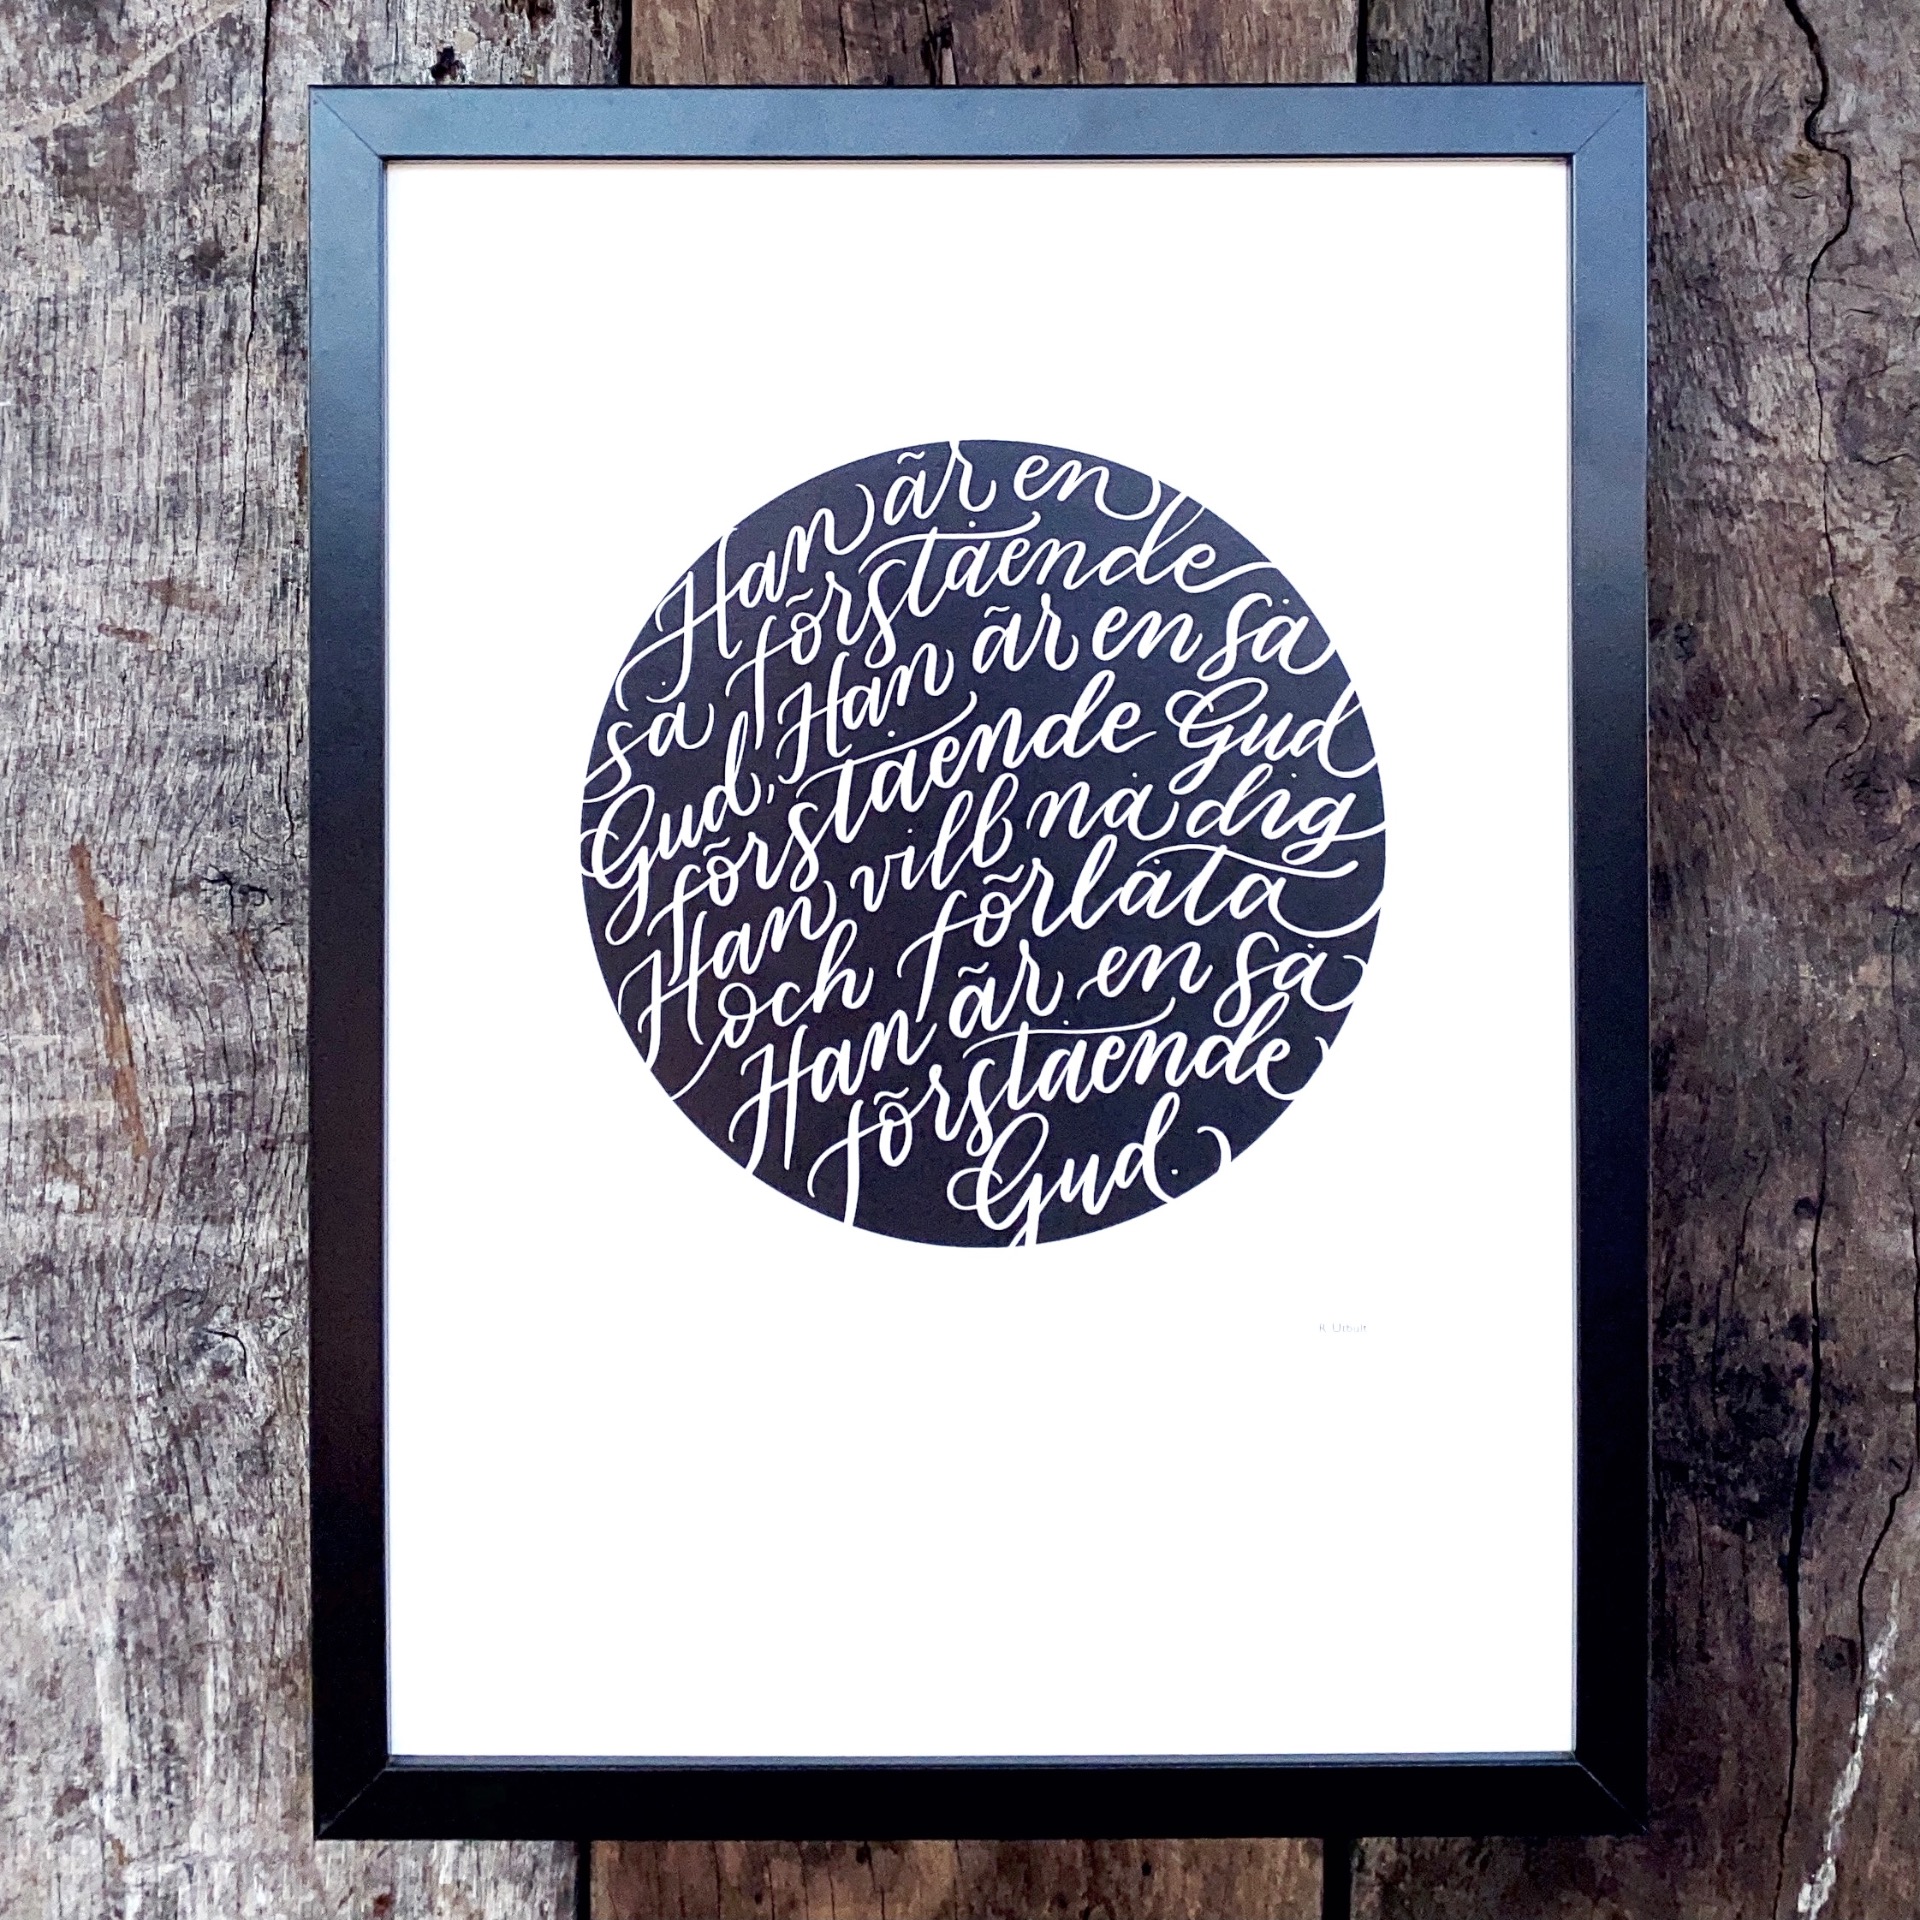 Han är en
så förstående
Gud, Han är en så
förstående Gud
Han vill nå dig
och förlåta
Han är en så
förstående
Gud.